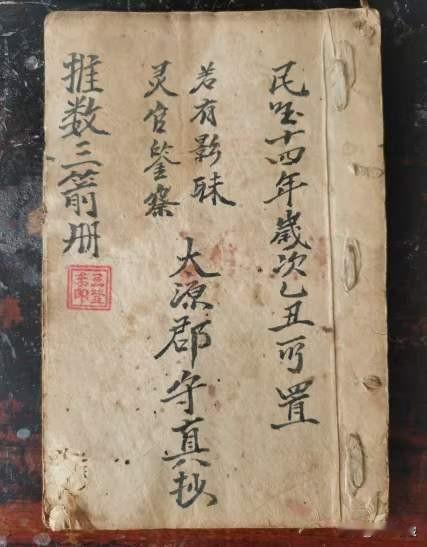 民国十四年歲次乙丑所置
若有影昧
灵官鉴察
太源郡守真抄
推数三箭册